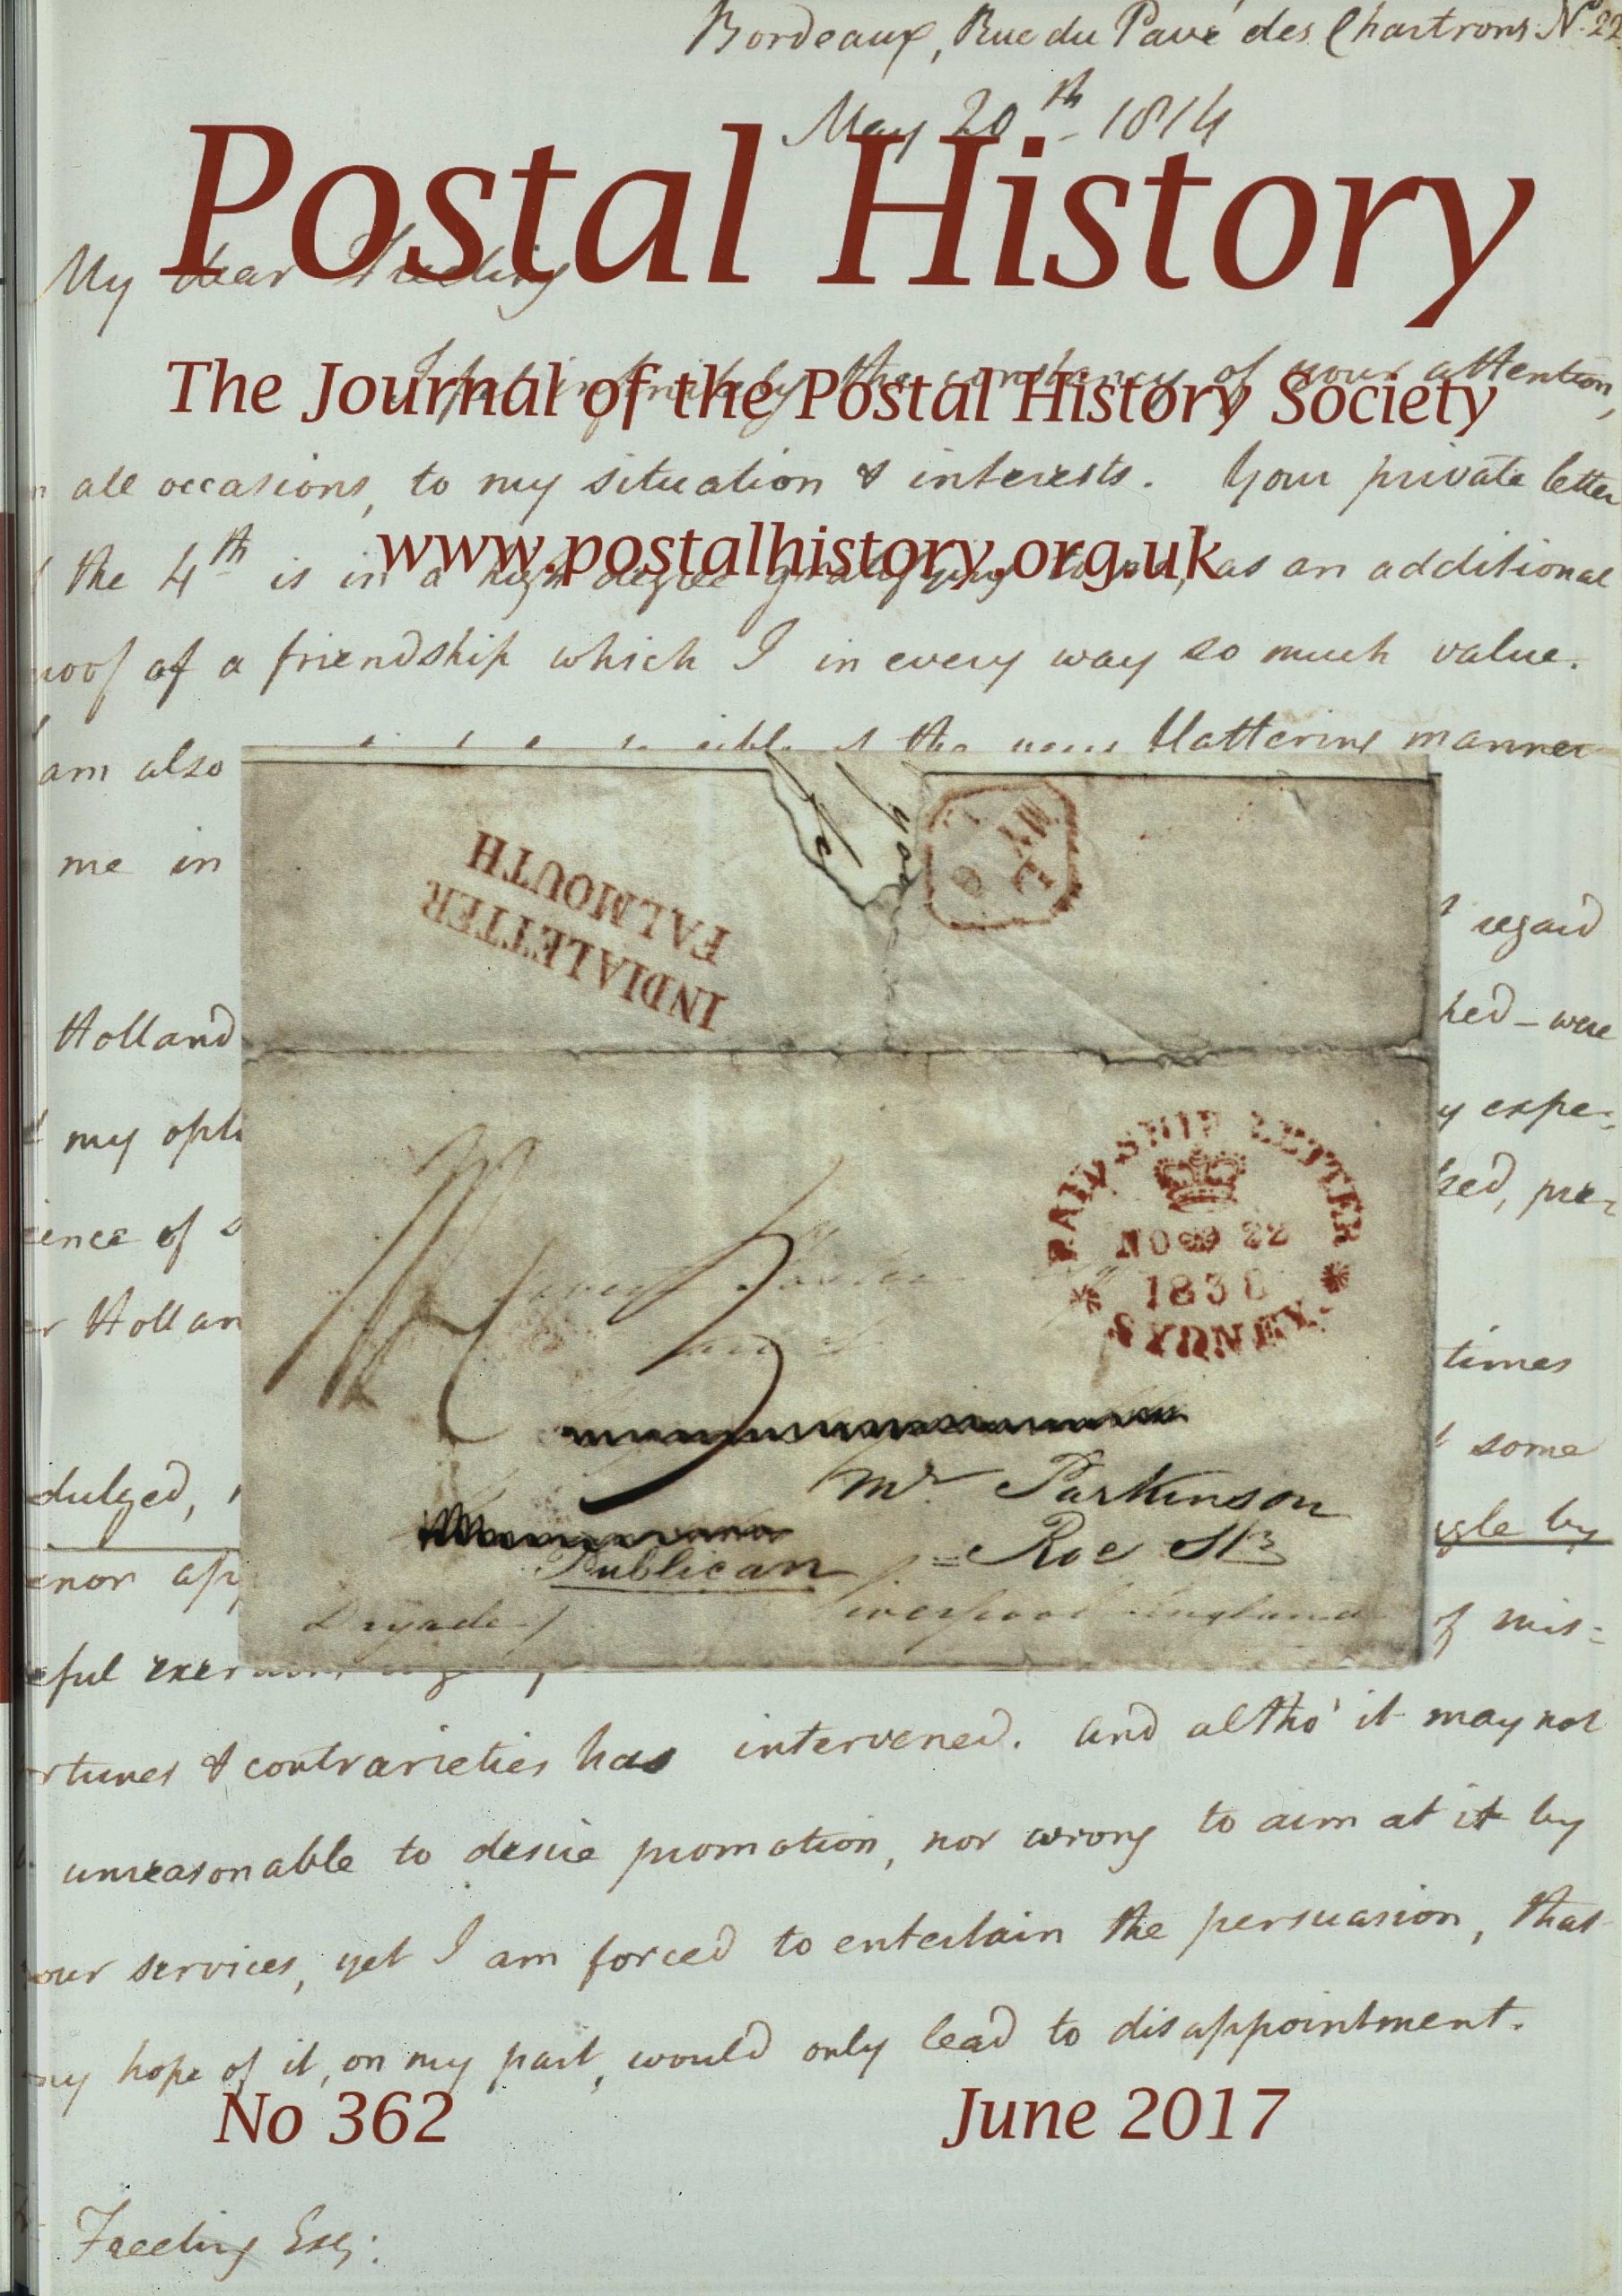 Bordeaux, Rue du Pavé des Chartrons No. 22
May 20th 1814
Postal History
My dear Freeling
The Journal of the Postal History Society
of your attention,
all occasions, to my situation & interests. Your private letter
www.postalhistory.org.uk
the 4th is in a high degree gratifying as an additional
of a friendship which I in every way so much value.
am also the very flattering manner
me in
FALMOUTH
INDIA LETTER
regard
Holland
were
my
y expe-
PAID SHIP LETTER
NO 22
183
SYDNEY
ience of
pre-
Hollan
times
some
dulged,
Mr Parkinson
by
Publican
Roe St
Dryade
Liverpool England
of mis-
eful
rtunes & contrarieties has intervened. And altho' it may not
unreasonable to desire promotion, nor wrong to aim at it by
our services, yet I am forced to entertain the persuasion, that
ny hope of it, on my part, would only lead to disappointment.
No 362
June 2017
Freeling Esq: